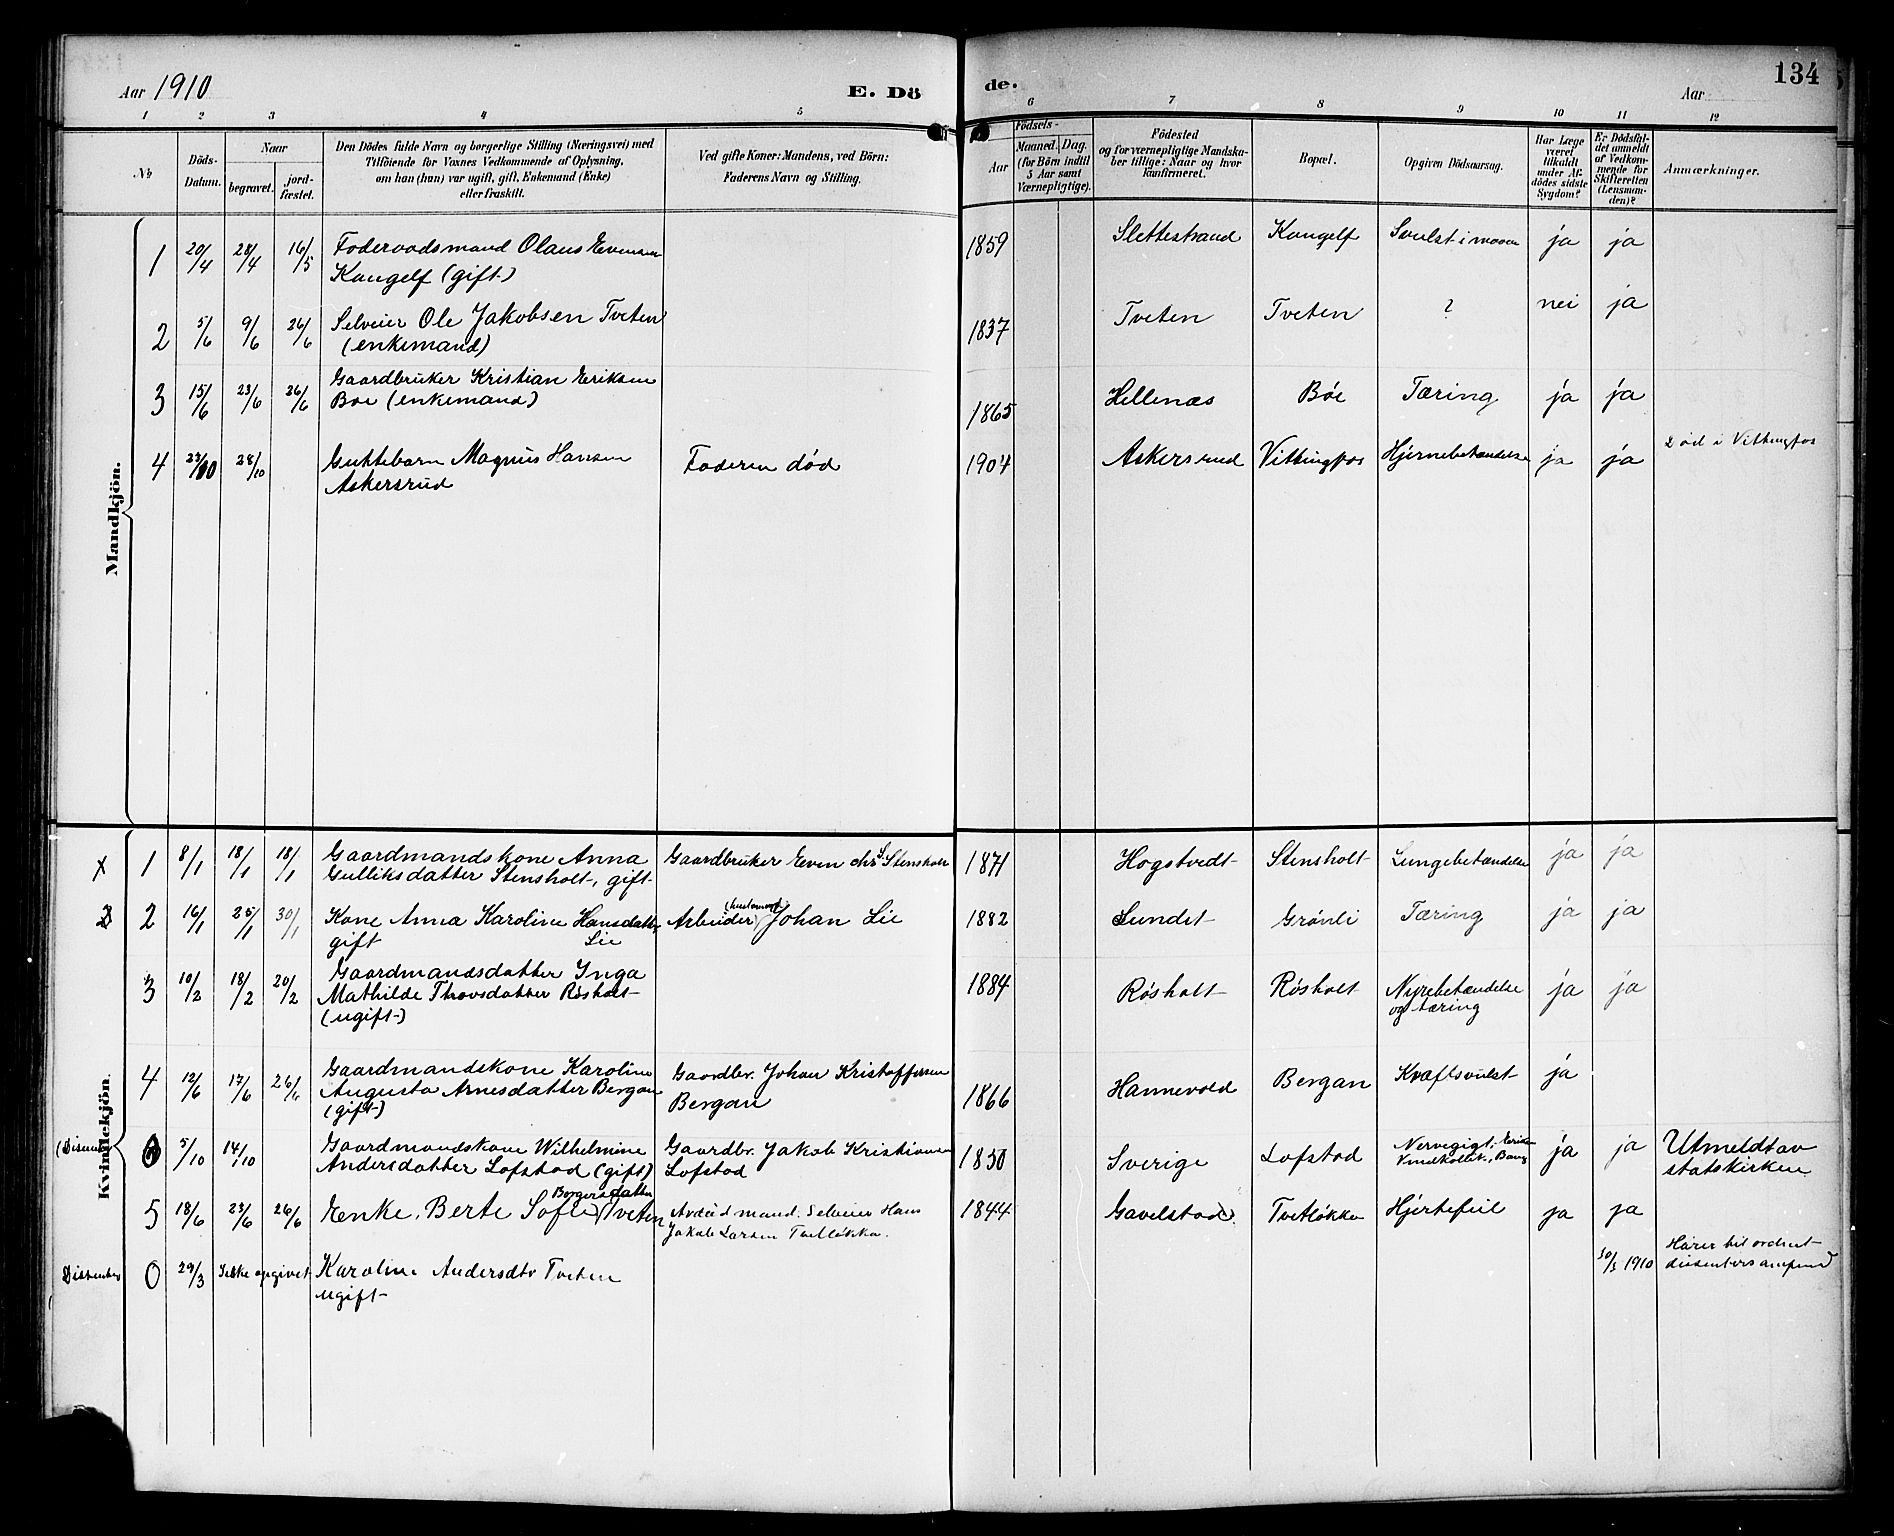 Aar 1910
E. Dö
de.
134
Aar
1 2 3 4 5 6 7 8 9 10 11 12
No
Döds-
Datum.
Naar
begravet.
jord-
fæstet.
Den Dödes fulde Navn og borgerlige Stilling (Næringsvei) med
Tilföiende for Voxnes Vedkommende af Oplysning,
om han (hun) var ugift, gift, Enkemand (Enke)
eller fraskilt.
Ved gifte Koner: Mandens, ved Börn:
Faderens Navn og Stilling.
Födsels-
Aar
Maaned. Dag.
(for Börn indtil
5 Aar samt
Værnepligtige).
Födested
og for værnepligtige Mandska-
ber tillige: Naar og hvor
konfirmeret.
Bopæl.
Opgiven Dödsaarsag.
Har Læge
været
tilkaldt
under Af-
dödes sidste
Sygdom?
Er Dödsfal-
det anmeldt
af Vedkom-
mende for
Skifteretten
(Lensman-
den)?
Anmærkninger.
Mandkjön.
1 20/4 28/4 16/5 Foderaadsmand Olaus Evensen
Kongelf (gift)
1859 Slettestrand Kongelf Svulst i maven ja ja
2 5/6 9/6 26/6 Selveier Ole Jakobsen Tveten
(enkemand)
1837 Tveten Tveten ? nei ja
3 15/6 23/6 26/6 Gaardbruker Kristian Eriksen
Bøe (enkemand)
1865 Hellenæs Bøe Tæring ja ja
4 23/10 28/10 Guttebarn Magnus Hansen
Askersrud
Faderen død
1904 Askersrud Vittingfos Hjernebetændelse ja ja
Død i Vittingfos
Kvindekjön.
x 1 8/1 18/1 18/1 Gaardmandskone Anna
Gulliksdatter Stensholt, gift
Gaardbruker Even Stensholt
1871 Hogstvedt Stensholt Lungebetændelse ja ja
2 16/1 25/1 30/1 Kone Anna Karoline Hansdatter
gift Lie
Arbeider Johan Lie
1882 Sundet Grönli Tæring ja ja
3 10/2 18/2 20/2 Gaardmandsdatter Inga
Mathilde Thovsdatter Røsholt
(ugift)
1884 Røsholt Røsholt Nyrebetændelse
og tæring
ja ja
4 12/6 17/6 26/6 Gaardmandskone Karoline
Augusta Arnesdatter Bergan
(gift)
Gaardbr. Johan Kristoffersen
Bergan
1866 Hannevold Bergan Kræftsvulst ja
0 5/10 14/10 Gaardmandskone Wilhelmine
Andersdatter Lofstad (gift)
Gaardbr. Jakob Kristiansen
Lofstad
1850 Sverige Lofstad Nervegigt,
ja ja Utmeldt av
statskirken
5 18/6 23/6 26/6 Enke, Berte Sofie Borgersdatter Tveten
Avdød mand. Selveier Hans
Jakob Larsen Tvetløkka.
1844 Gavelstad Tvetløkka Hjertefeil ja ja
Dissenter 0 29/3 Ikke opgivet Karoline Andersdtr Tveten
ugift
1910 Hører til